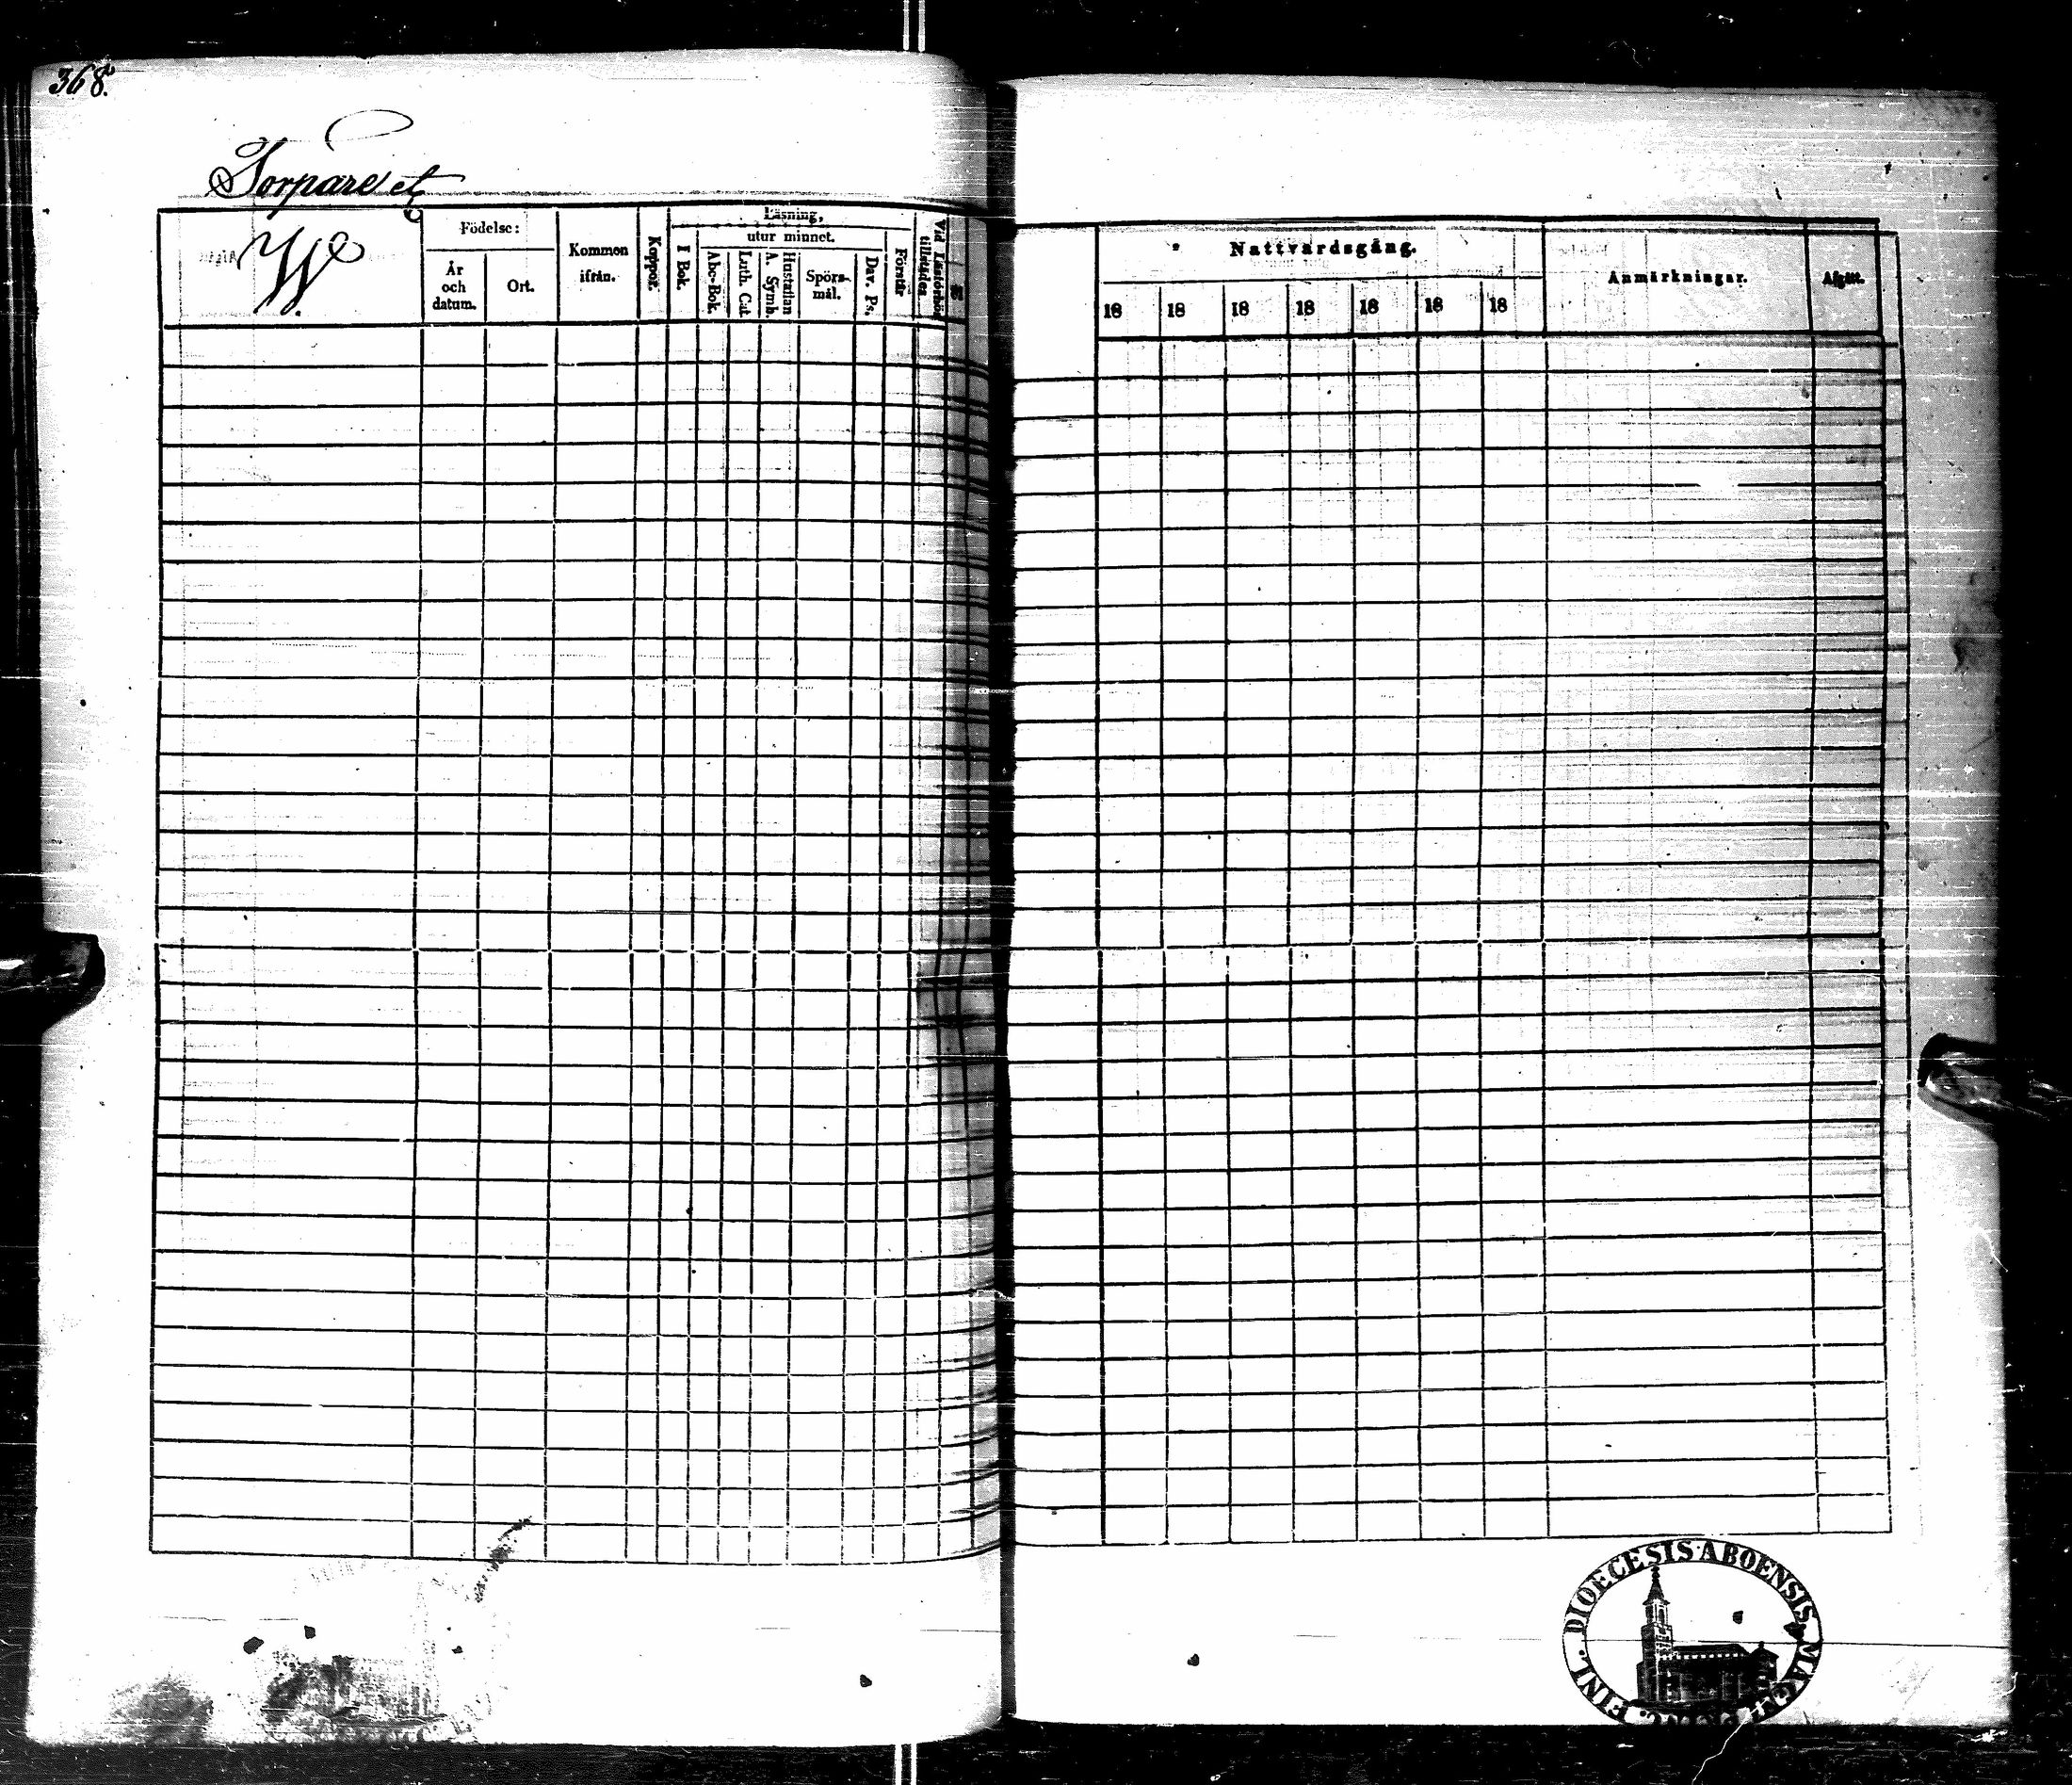 368.
Torpare etc
W.
Födelse:
År
och
datum.
Ort.
Kommen
ifrån.
Koppor.
Läsning,
I Bok.
utur minnet.
Abc-Bok.
Luth. Cat
Hustaflan
A. Symb.
Spörs-
mål.
Dav. Ps.
Förstår
Vid Läsförhör
tillstädes
Nattvardsgång.
18 18 18 18 18 18 18
Anmärkningar.
Afgått.
DIOECESIS ABOENSIS MAGNI PRINC. FINL.